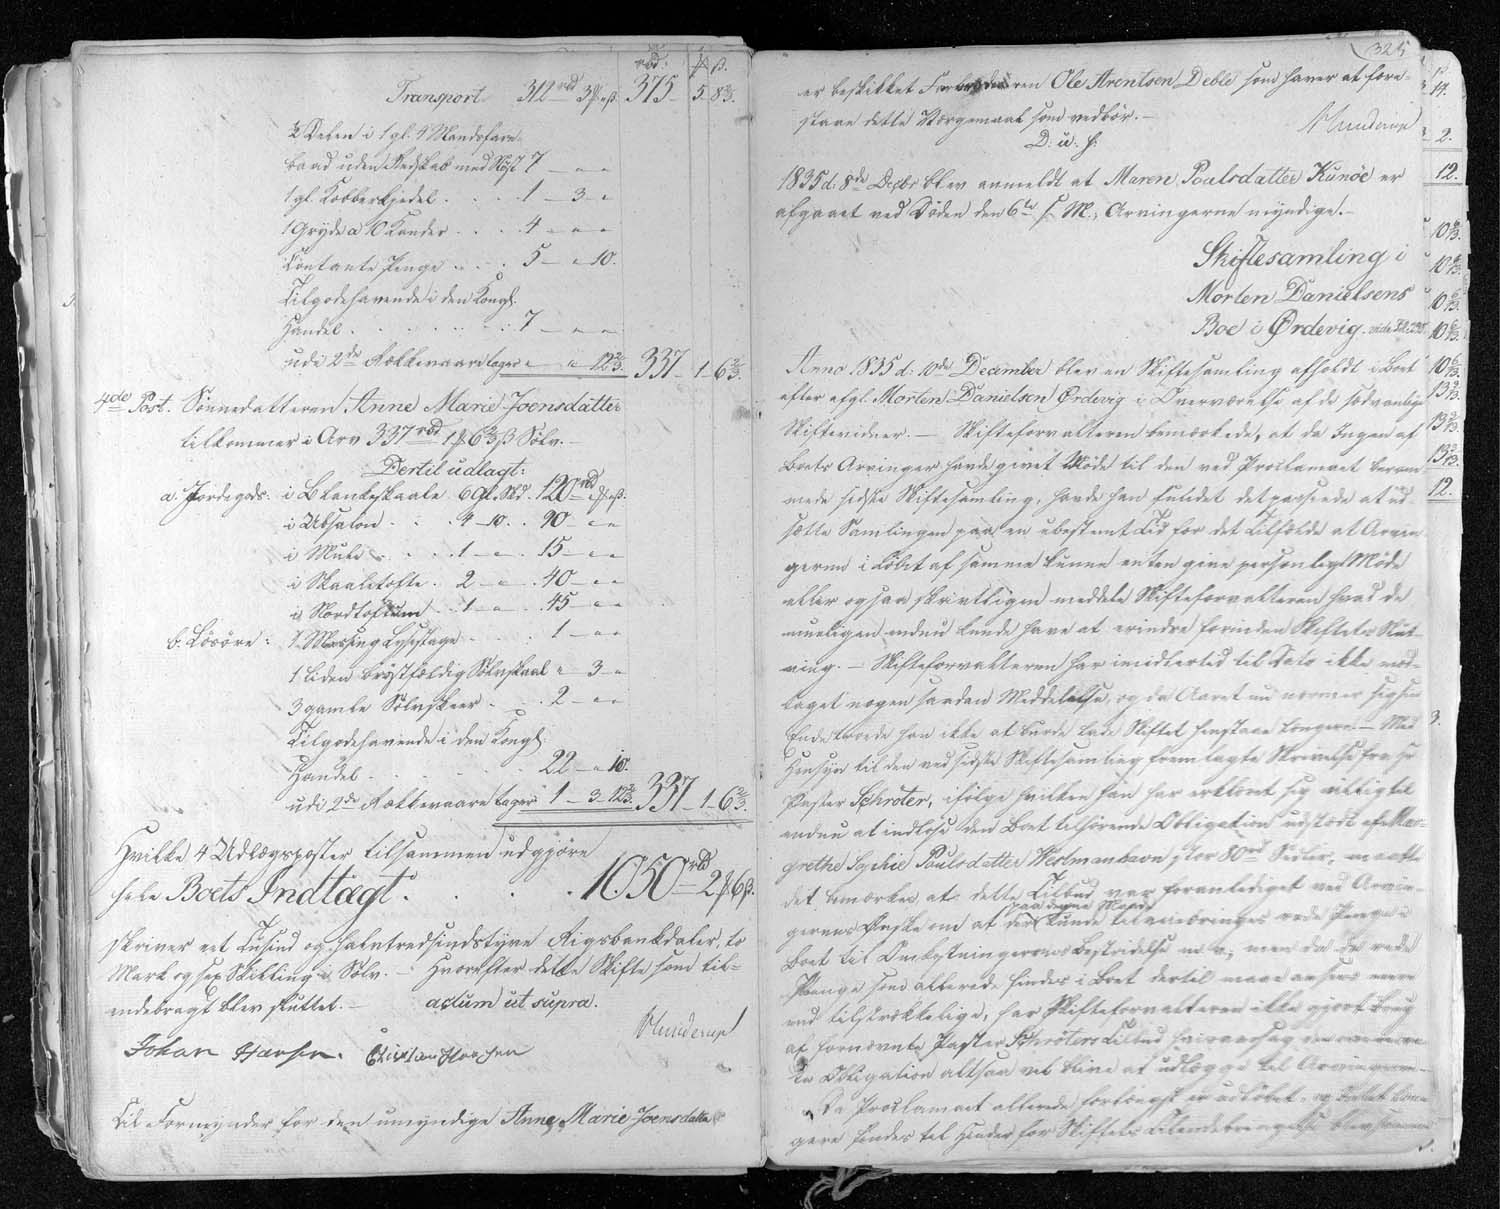 rbd: ꟙ ß.
Transport 312 rbd 3 ꟙ " ß 375 - 5 - 8 2/3.
1/2 Delen i 1 gl. 8 Mandsfare-
baad uden Redskab med Nøst 7 - " - "
1 gl. Kobberkjedel . . . 1 - 3 - "
1 Gryde a 10 Kander . . . 4 - " - "
Contante Penge . . . 5 - " - 10.
Tilgodehavende i den Kongl.
Handel . . . . . 7 - " - "
udi 2de Rækkevaarelager " " 12 2/3. 337 - 1 - 6 2/3.
4de Post. Sønnedatteren Anne Marie Joensdatter
tilkommer i Arv 337 rbd 1 ꟙ 6 2/3 ß Sølv. -
Dertil udlagt:
a. Jordegods: i Blankeskaale 6 Gl. Skd. 120 rbd " ꟙ " ß.
i Absalon . . . 4 - 10. . 90 - " - "
i Mule . . . 1 - " - . 15 - " - "
i Skaaletofte . 2 - " . 40 - " - "
i Nordtoftum . 1 - " . 45 - " - "
b. Løsøre: 1 Messing Lysestage . . . 1 - " - "
1 liden brøstfældig Sølvskaal " - 3 - "
3 gamle Sølvskeer . . . 2 - " - "
Tilgodehavende i den Kongl.
Handel . . . . . 22 - " - 10.
udi 2de Rækkevaare Lager 1 - 3 - 12 2/3. 337 - 1 - 6 2/3.
Hvilke 4 Udlægsposter tilsammen udgjøre
hele Boets Indtægt . . . . 1050 rbd 2 ꟙ 6 ß.
skriver eet Tusind og halvtredsindstyve Rigsbankdaler, to
Mark og sex Skilling i Sølv. - Hvorefter dette Skifte som til-
endebragt blev sluttet. - actum ut supra.
Munderup
Johan Hansen. Christian
Til Formynder for den umyndige Anne Marie Joensdatter
325
er beskikket Farbroderen Ole Arentsen Deble som haver at fore-
staae dette Værgemaal som vedbør. -
D: u: s: Munderup
1835 d: 8de Decbr blev anmeldt at Maren Poulsdatter Kunøe er
afgaaet ved Døden den 6te s. M., Arvingerne myndige. -
Skiftesamling i
Morten Danielsens
Boe i Ørdevig. vide Fol: 295.
Anno 1835 d: 10de December blev en Skiftesamling afholdt i Boet
efter afgl. Morten Danielsen Ørdevig i Overværelse af de sædvanlige
Skiftevidner. - Skifteforvalteren bemærkede, at da Ingen af
Boets Arvinger havde givet Møde til den ved Proclamaet beram-
mede sidste Skiftesamling, havde han fundet det passende at ud-
sætte Samlingen paa en ubestemt Tid for det Tilfælde at Arvin-
gerne i Løbet af samme kunne enten give personligt Møde
eller ogsaa skriftligen meddele Skifteforvalteren hvad de
mueligen endnu kunde have at erindre forinden Skiftets Slut-
ning. - Skifteforvalteren har imidlertid til Dato ikke mod-
taget nogen saadan Meddelelse, og da Aaret nu nærmer sig sin
Ende troede han ikke at burde lade Skiftet henstaae længere. - Med
Hensyn til den ved sidste Skiftesamling fremlagte Skrivelse fra Hr
Paster Schrøter, ifølge hvilken han har erklæret sig villig til
endnu at indløse den Boet tilhørende Obligation udstædt af Mar-
grethe Sophie Poulsdatter Westmanhavn stor 80 rd Sedler, maatte
det bemærkes at dette Tilbud var foranlediget ved Arvin-
gernes Ønske om at der paa denne Maade kunde tilveiebringes rede Penge i
Boet til Omkostningernes Bestridelse m. v., men da de rede
Penge som allerede findes i Boet dertil maae ansees mere
end tilstrækkelige, har Skifteforvalteren ikke gjort Brug
af fornævnte Paster Schrøters Tilbud
Obligation altsaa vil blive at udlægge til Arvingerne. -
Da Proclamaet allerede forlængst er udløbet, og Intet læn-
gere findes til Hinder for Skiftets Tilendebringelse blev
14.
2.
12.
10 6/13.
10 6/13.
10 6/13.
10 6/13.
10 6/13.
13 2/13.
13 2/13.
13 2/13.
12.
3.